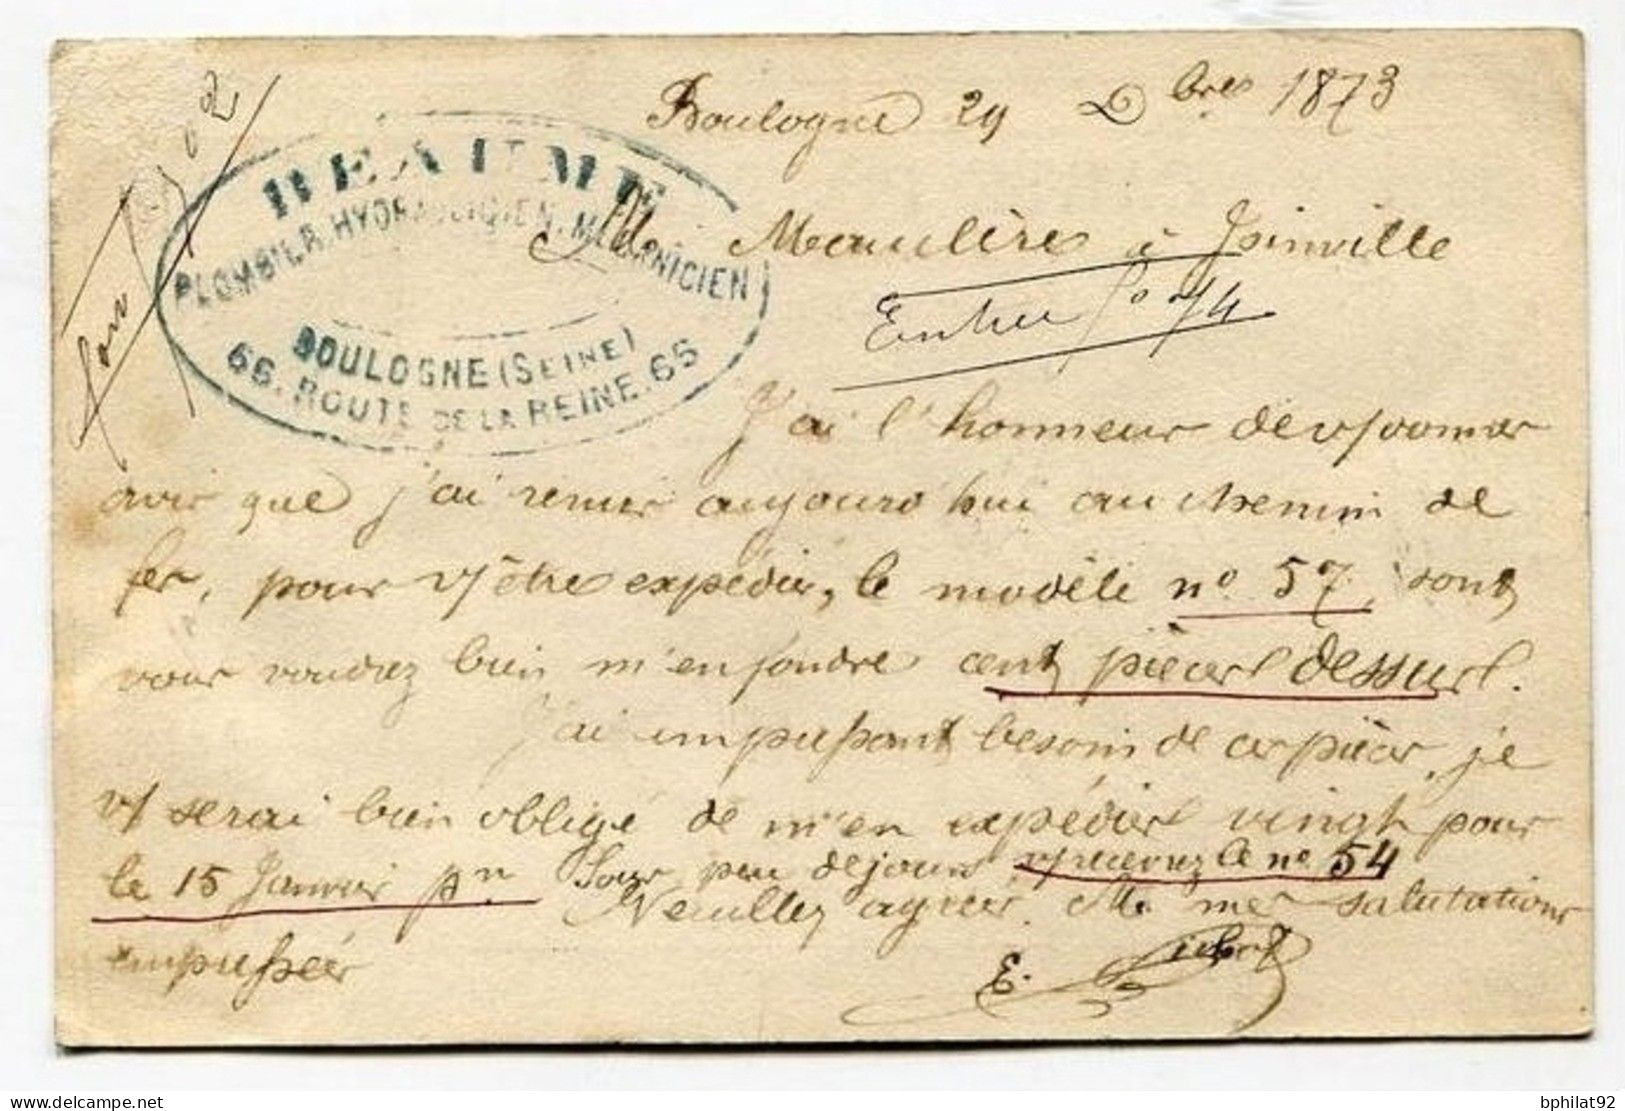 Boulogne 29 Xbres 1873
BEAUME
PLOMBIER, HYDRAULICIEN, MÉCANICIEN
BOULOGNE (SEINE)
66. ROUTE DE LA REINE. 66
M Mauclère à Joinville
J'ai l'honneur de v/ donner
avis que j'ai remis aujourd'hui au chemin de
fer, pour v/ être expédié, le modèle no 57, dont
vous voudrez bien m'en fondre cent pièces dessus.
J'ai un pressant besoin de ces pièces, je
v/ serai bien obligé de m'en expédier vingt pour
le 15 Janvier pn Sous peu de jours v/ recevrez le no 54
Veuillez agréer, M. mes salutations
empressées
E.
www.delcampe.net
bphilat92